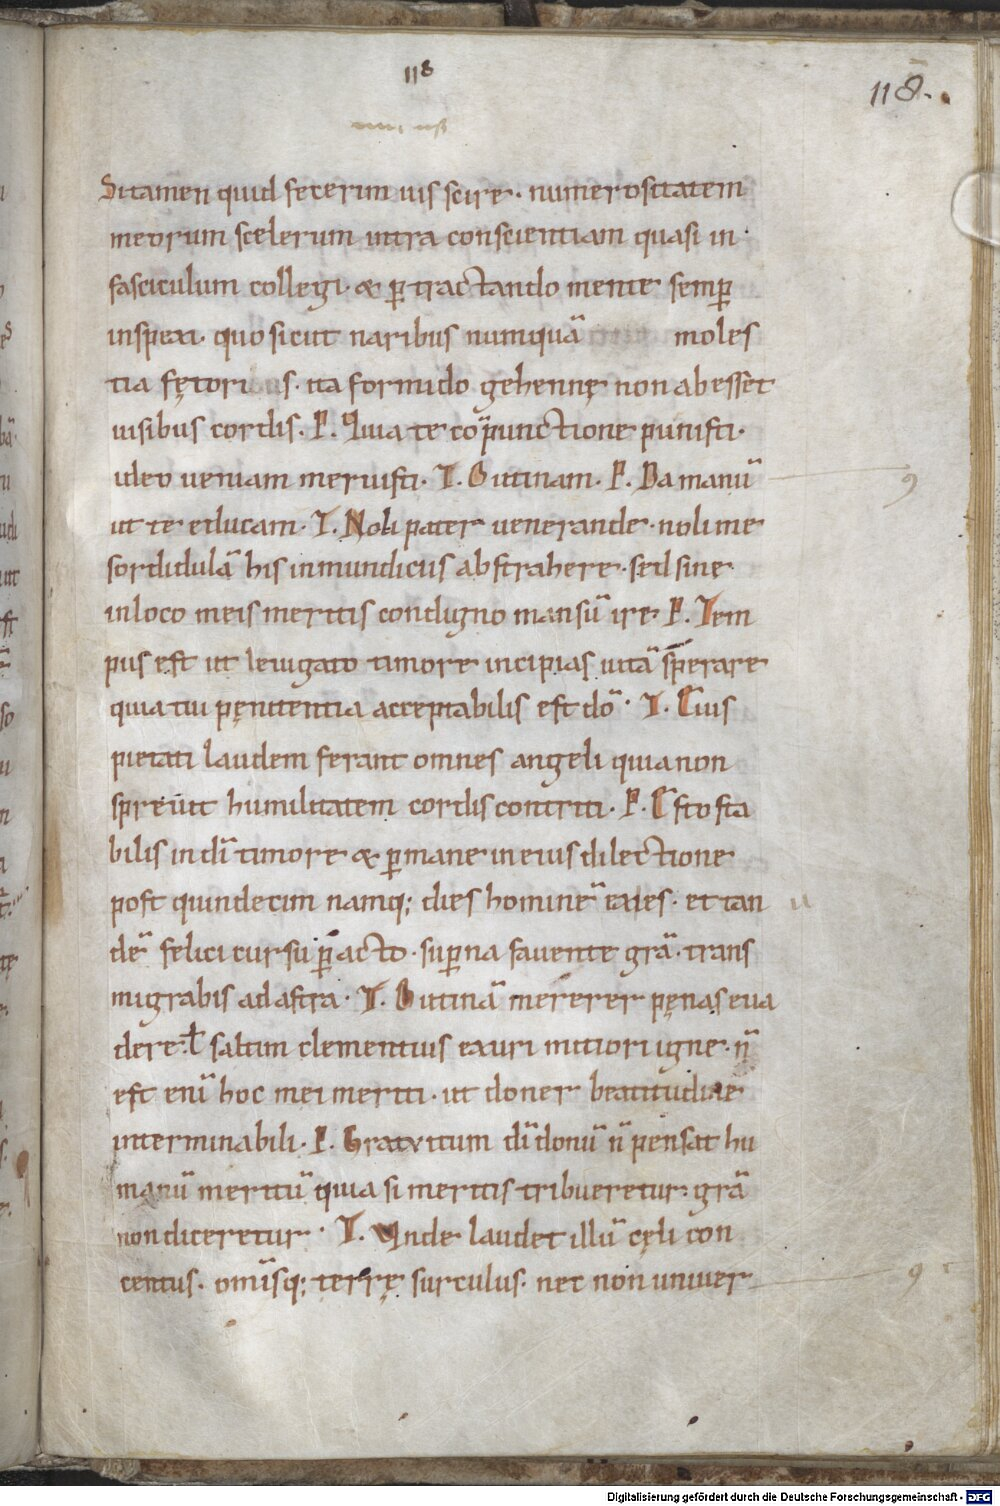 118
118.
Sitamen quid fecerim uis scire· numerositatem
meorum scelerum intra conscientiam quasi in·
fasciculum collegi· & ꝑtractando mente semꝑ
inspexi· quo sicut naribus numquā moles
tia fętoris· ita formido gehennę non abesset
uisibus cordis. P. Quia te cōpunctione punisti·
ideo ueniam meruisti· T. Uitinam· P. Da manū
ut te educam· T. Noli pater uenerande· noli me
sordidulā his inmundiciis abstrahere· sed sine
in loco meis meritis condigno mansū ire· P. Tem
pus est ut leuigato timore incipias uitā sperare
quia tui pęnitentia acceptabilis est dō· T. Cuius
pietati laudem ferant omnes angeli quia non
spreuit humilitatem cordis contriti· P. Esto sta
bilis in dī timore & ꝑmane in eius dilectione
post quindecim namq; dies hominē exies· et tan
dē felici cursu ꝑacto· suꝑna fauente grā· trans
migrabis ad astra· T. Uitinā mererer pęnas eua
dere· ł saltim clementius exuri mitiori igne· n̄
est enī hoc mei meriti· ut doner beatitudine
interminabili· P. Gratuitum dī donū n̄ pensat hu
manū meritū quia si meritis tribueretur· grā
non diceretur· T. Unde laudet illū cęli con
centus· omīsq; terrę surculus· nec non uniuer
Digitalisierung gefördert durch die Deutsche Forschungsgemeinschaft - DFG